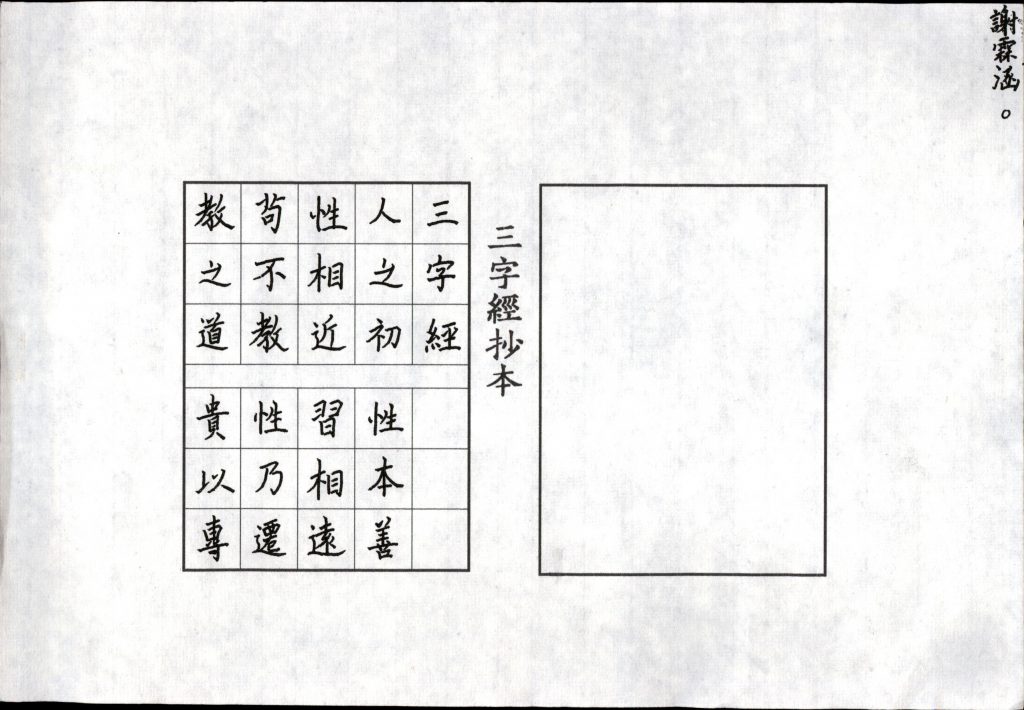 謝霖涵。
三字經抄本
三字經
人之初 性本善
性相近 習相遠
苟不教 性乃遷
教之道 貴以專